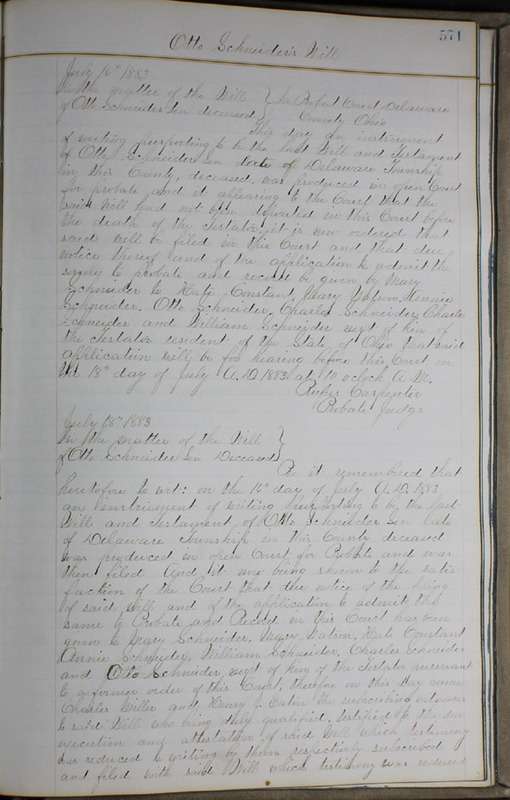 571
Otto Schneider's Will
July 16th 1883
In the matter of the Will
of Otto Schneider Sen deceased
In Probat Court, Delaware
County Ohio
This day an instrument
of writing purporting to be the last Will and Testament
of Otto Schneider Sen late of Delaware Township
in this County, deceased, was produced in open Court
for probate and it appearing to the Court that the
said Will had not been deposited in this Court before
the death of the Testator, it is now ordered that
said will be filed in this Court and that due
notice thereof and of the application to admit the
same to probate and record be given by Mary
Schneider to Kate Constant, Mary Watson,
Schneider. Otto Schneider, Charles Schneider,
Schneider and William Schneider next of kin of
the Testator resident of the State of Ohio that said
application will be for hearing before this Court on
the 18th day of July A.D. 1883 at 10 oclock A.M.
Rufus Carpenter
Probate Judge
July 18th 1883
In the matter of the Will
of Otto Schneider Sen Deceased
Be it remembered that
heretofore to wit: on the 16th day of July A.D. 1883
an instrument of writing purporting to be the last
Will and Testament of Otto Schneider Sen late
of Delaware Township in this County deceased
was produced in open Court for Probate and was
then filed And it now being shown to the satis
faction of the Court that due notice of the filing
of said will and of the application to admit the
same to Probate and Record in this Court has been
given to Mary Schneider, Mary Watson, Kate Constant
Annie Schneider, William Schneider, Charles Schneider
and Otto Schneider next of kin of the Testator pursuant
to a former order of this Court, therefor on this day came
Charles Miller and Henry J. Eaton the subscribing witnesses
to said Will who being duly qualified, testified to the due
execution and attestation of said Will which testimony
was reduced to writing by them respectivly subscribed
and filed with said Will which testimony was reduced